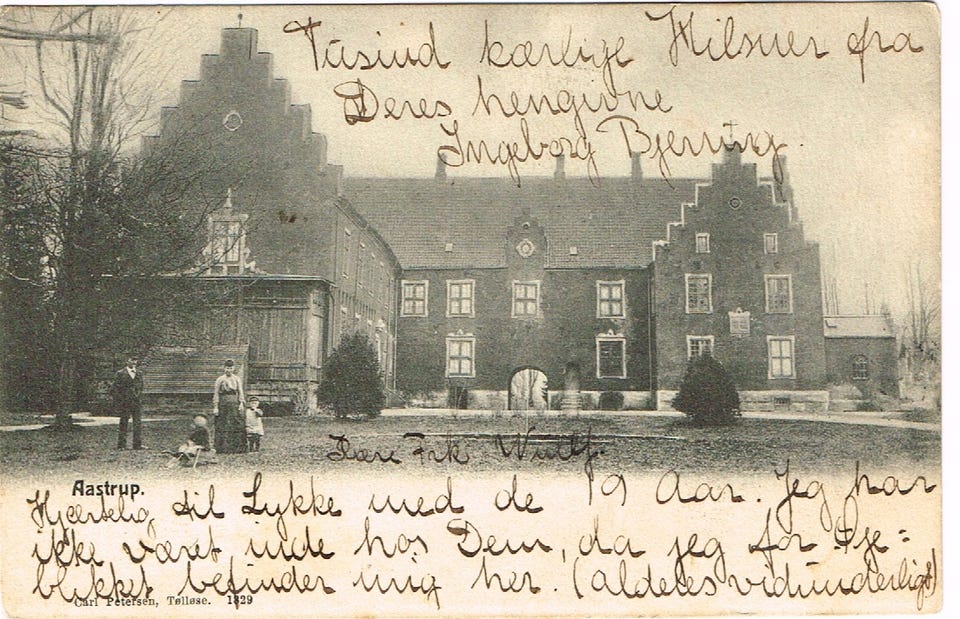 Tusind kærlige Hilsner fra
Deres hengivne
Ingeborg Bjerring.
Kære Frk Wulff.
Aastrup.
Hjærtelig til Lykke med de 19 Aar. Jeg har
ikke været inde hos Dem, da jeg for Øje=
blikket befinder mig her. (aldeles vidunderligt)
Carl Petersen, Tølløse. 1829